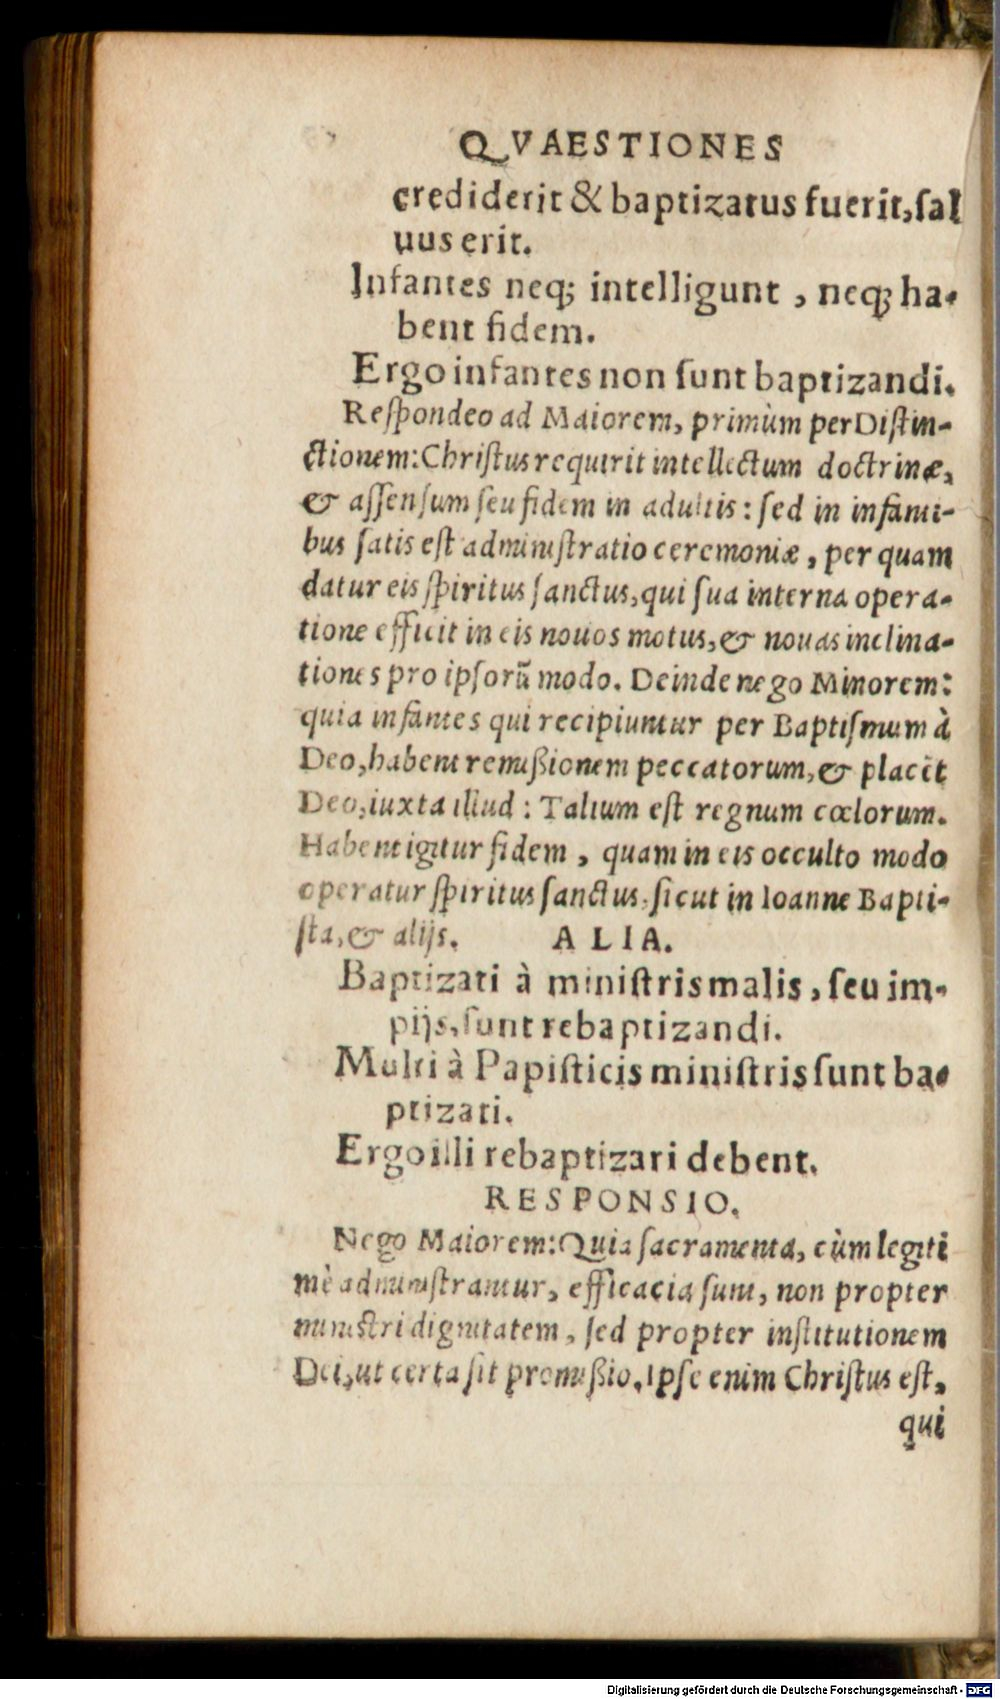 QVAESTIONES
crediderit & baptizatus fuerit, ſal
uus erit.
Infantes neq; intelligunt, neq; ha-
bent fidem.
Ergo infantes non ſunt baptizandi.
Reſpondeo ad Maiorem, primùm per Diſtin-
ctionem: Chriſtus requirit intellectum doctrinæ,
& aſſenſum ſeu fidem in adultis: ſed in infanti-
bus ſatis eſt adminiſtratio ceremoniæ, per quam
datur eis ſpiritus ſanctus, qui ſua interna opera-
tione efficit in eis nouos motus, & nouas inclina-
tiones pro ipſorũ modo. Deinde nego Minorem:
quia infantes qui recipiuntur per Baptiſmum à
Deo, habent remißionem peccatorum, & placēt
Deo, iuxta illud: Talium eſt regnum cœlorum.
Habent igitur fidem, quam in eis occulto modo
operatur ſpiritus ſanctus, ſicut in Ioanne Bapti-
ſta, & alijs. ALIA.
Baptizati à miniſtris malis, ſeu im-
pijs, ſunt rebaptizandi.
Multi à Papiſticis miniſtris ſunt ba-
ptizati.
Ergo illi rebaptizari debent.
RESPONSIO.
Nego Maiorem: Quia ſacramenta, cùm legiti
mè adminiſtrantur, efficacia ſunt, non propter
miniſtri dignitatem, ſed propter inſtitutionem
Dei, ut certa ſit promißio. Ipſe enim Chriſtus eſt,
qui
Digitalisierung gefördert durch die Deutsche Forschungsgemeinschaft - DFG